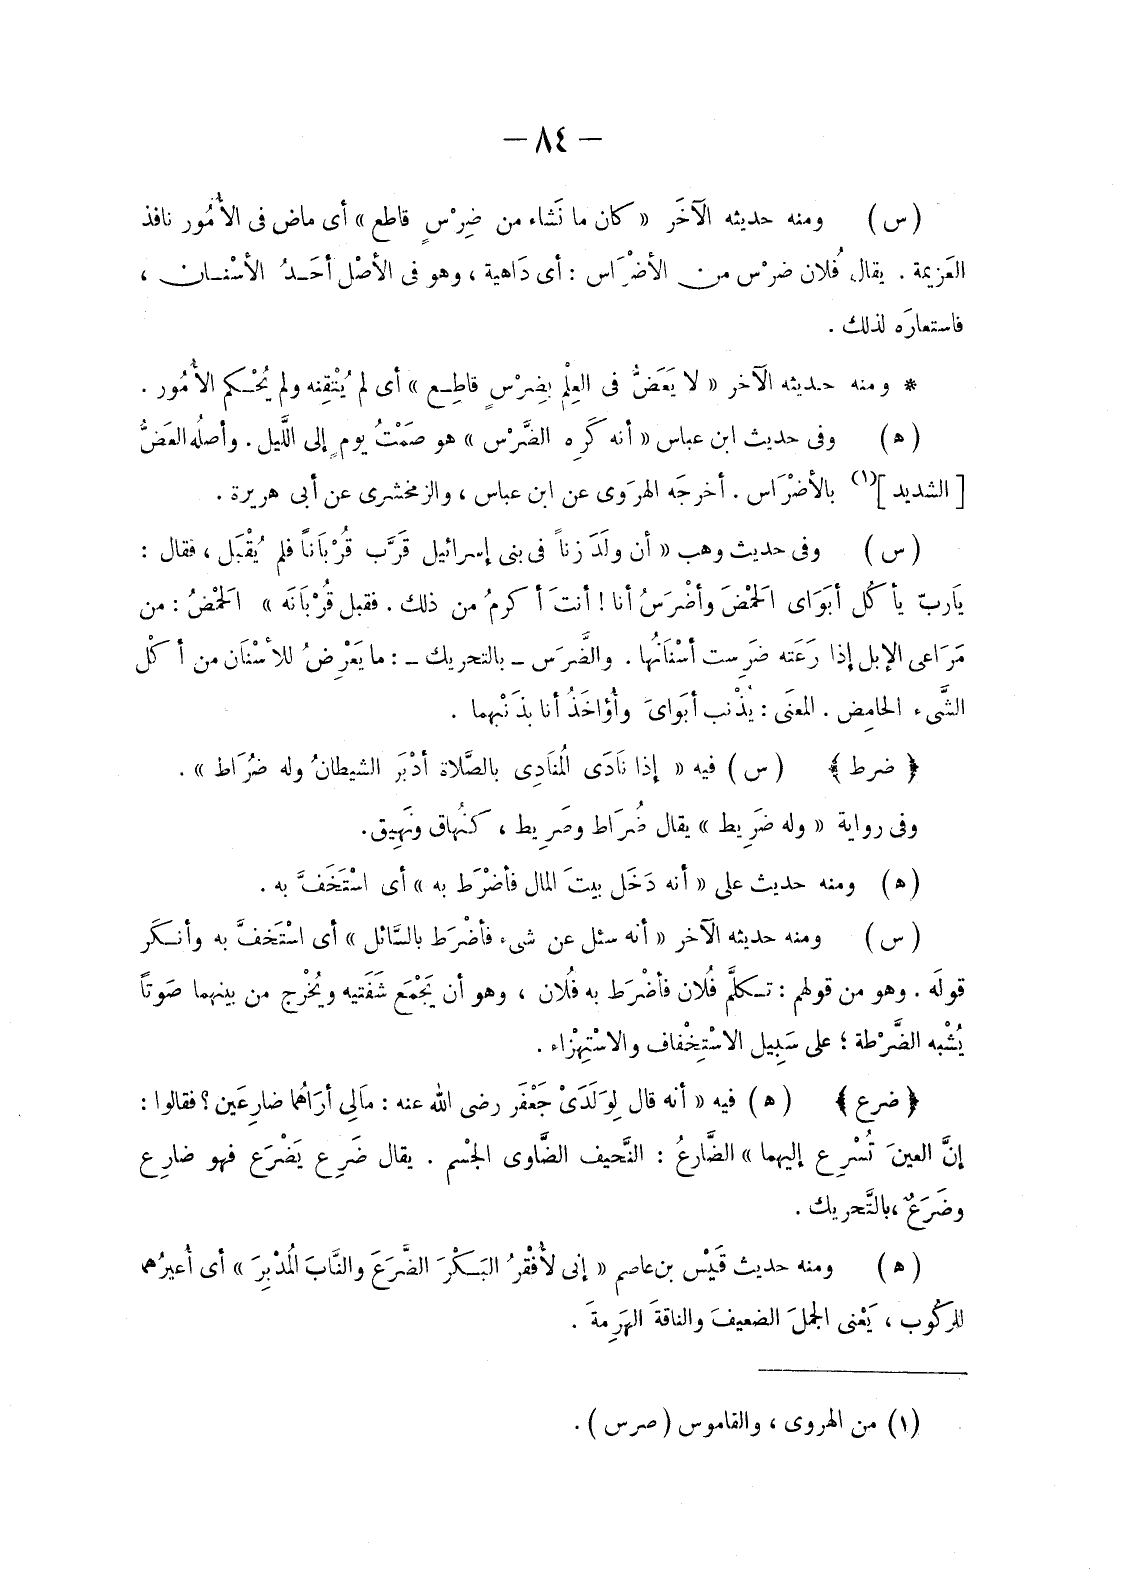 — ٨٤ —
( س ) ومنه حديثه الآخَر « كان ما نَشاء من ضِرْسٍ قاطع » أى ماض فى الأُمُور نافذ
العَزيمة . يقال فُلان ضرْس من الأضْرَاس : أى دَاهية ، وهو فى الأصْل أحَدُ الأسْنان ،
فاستعارَه لذلك .
* ومنه حديثه الآخر « لا يَعَضُّ فى العِلْم بِضِرْسٍ قاطِع » أى لم يُتْقِنه ولم يُحْكم الأُمُور .
( ه ) وفى حديث ابن عباس « أنه كَرِه الضَّرْس » هو صَمْتُ يومٍ إلى اللَّيل . وأصلُه العَضُّ
[ الشديد ](١) بالأضْرَاس . أخرجَه الهرَوى عن ابن عباس ، والزمخشرى عن أبى هريرة .
( س ) وفى حديث وهب « أن ولَدَ زناً فى بنى إسرائيل قَرَّب قُرْبَاناً فلم يُقْبَل ، فقال :
يَاربّ يأكُل أبَوَاى الَحمْضَ وأضْرَسُ أنا ! أنتَ أكرمُ من ذلك . فقبل قُرْبَانَه » الَحمْضُ : من
مَرَاعى الإبل إذا رَعَته ضَرِست أسْنَانُها . والضَّرَس ـ بالتحريك ـ : ما يَعْرِضُ للأسْنَان من أكْل
الشَّىء الحامِض . المعنَى : يُذْنب أبَواىَ وأُؤاخَذُ أنا بذَنْبهما .
﴿ ضرط ﴾ ( س ) فيه « إذا نَادَى الُمنَادِى بالصَّلاة أدْبَرَ الشيطانُ وله ضُرَاط » .
وفى رواية « وله ضَرِيط » يقال ضُرَاط وضَرِيط ، كنُهاق ونَهِيق .
( ه ) ومنه حديث على « أنه دَخَل بيتَ المال فأضْرَط به » أى اسْتَخَفَّ به .
( س ) ومنه حديثه الآخر « أنه سئل عن شىء فأضْرَط بالسَّائل » أى اسْتَخفَّ به وأنكَر
قولَه . وهو من قولهم : تكلَّم فُلان فأضْرَط به فُلان ، وهو أن يَجْمَع شَفَتيه ويُخْرج من بينهما صَوتاً
يُشْبه الضَّرْطة ؛ على سَبِيل الاسْتِخْفاف والاسْتِهْزاء .
﴿ ضرع ﴾ ( ه ) فيه « أنه قال لِوَلَدَىْ جَعْفَر رضى الله عنه : مَالِى أرَاهُما ضارِعَين ؟ فقالوا :
إنَّ العينَ تُسْرِع إليهما » الضَّارعُ : النَّحيف الضَّاوى الجسْم . يقال ضَرِع يَضْرَع فهو ضارِع
وضَرَعٌ ،بالتَّحريك .
( ه ) ومنه حديث قَيْس بن عاصم « إنى لأُفْقرُ البَكْرَ الضَّرَعَ والنَّابَ الُمدْبِرَ » أى أُعيرُهما
للرُكُوب ، يَعْنى الجملَ الضعيفَ والناقةَ الهَرِمةَ .
(١) من الهروى ، والقاموس ( ضرس ) .